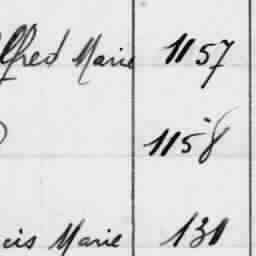 lfred Marie 1157
1158
cis Marie 131